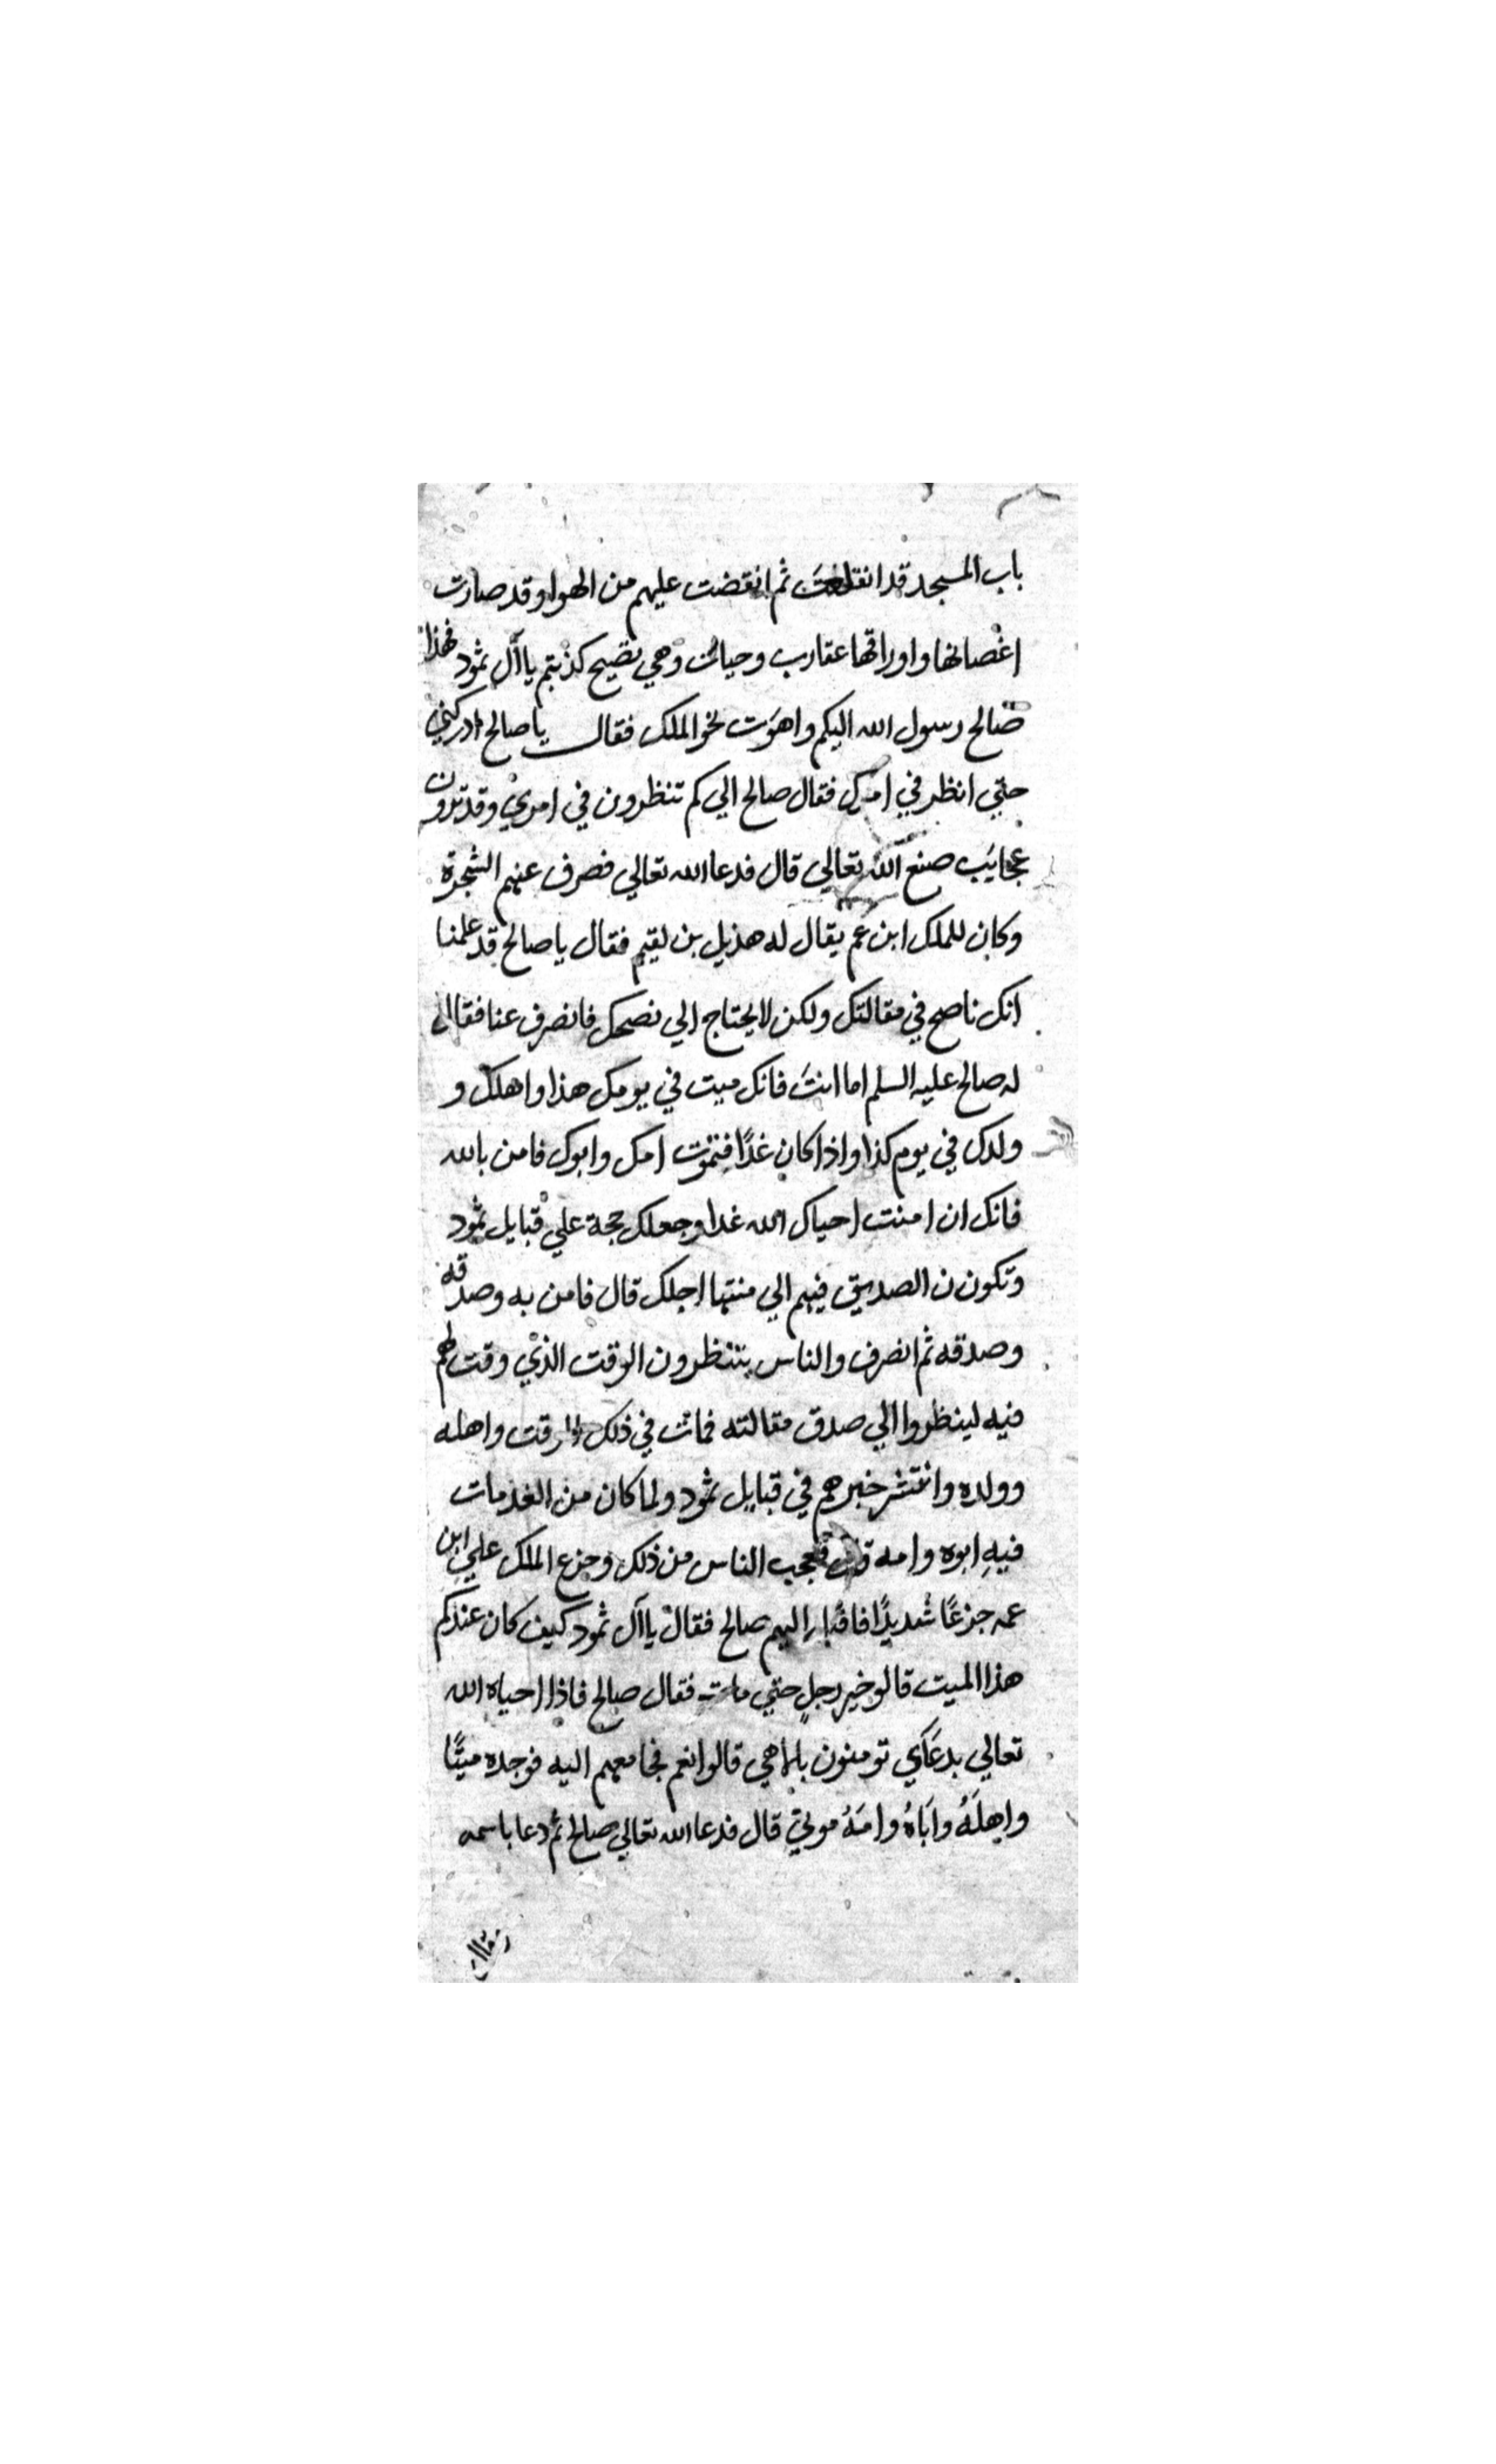 باب المسجد قد انقلعت ثم انقضت عليهم من الهوا وقد صارت
اغصانها واوراقها عقارب وحيات وهي تصيح كذبتم يا آل ثمود فهذا
صالح رسول الله اليكم واهوت نحو الملك فقال يا صالح ادركني
حتي انظر في امرك فقال صالح الي كم تنظرون في امري وقد ترون
عجايب صنع الله تعالي قال فدعا الله تعالي فصرف عنهم الشجرة
وكان للملك ابن عم يقال له هذيل بن لقيم فقال يا صالح قد علمنا
انك ناصح في مقالتك ولكن لا يحتاج الي نصحك فانصرف عنا فقال
له صالح عليه السلم اما انت فانك ميت في يومك هذا واهلك و
ولدك في يوم كذا واذا كان غدًا فتموت امك وابوك فامن بالله
فانك ان امنت احياك الله غدا وجعلك حجة علي قبايل ثمود
وتكون ن الصديق فيهم الي منتها اجلك قال فامن به وصدقه
وصدقه ثم انصرف والناس ينتظرون الوقت الذي وقت لهم
فيه لينظروا الي صدق مقالته فمات في ذلك الوقت واهله
وولده وانتشر خبرهم في قبايل ثمود ولما كان من الغد مات
فيه ابوه وامه فعجب الناس من ذلك وجزع الملك علي ابن
عمه جزعًا شديدًا فاقبل اليهم صالح فقال يا آل ثمود كيف كان عندكم
هذا الميت قالو خير رجل حتي مات فقال صالح فاذا احياه الله
تعالي بدعاي تومنون بالاهي قالوا نعم فجا معهم اليه فوجده ميتًا
واهلَهُ وابَاهُ وامَهُ موتي قال فدعا الله تعالي صالح ثم دعا باسمه